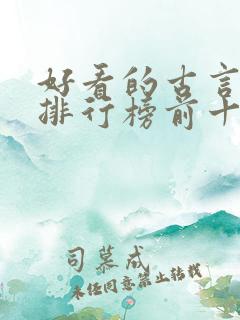 好看的古言
排行榜前十
司慕成
未经同意禁止转载